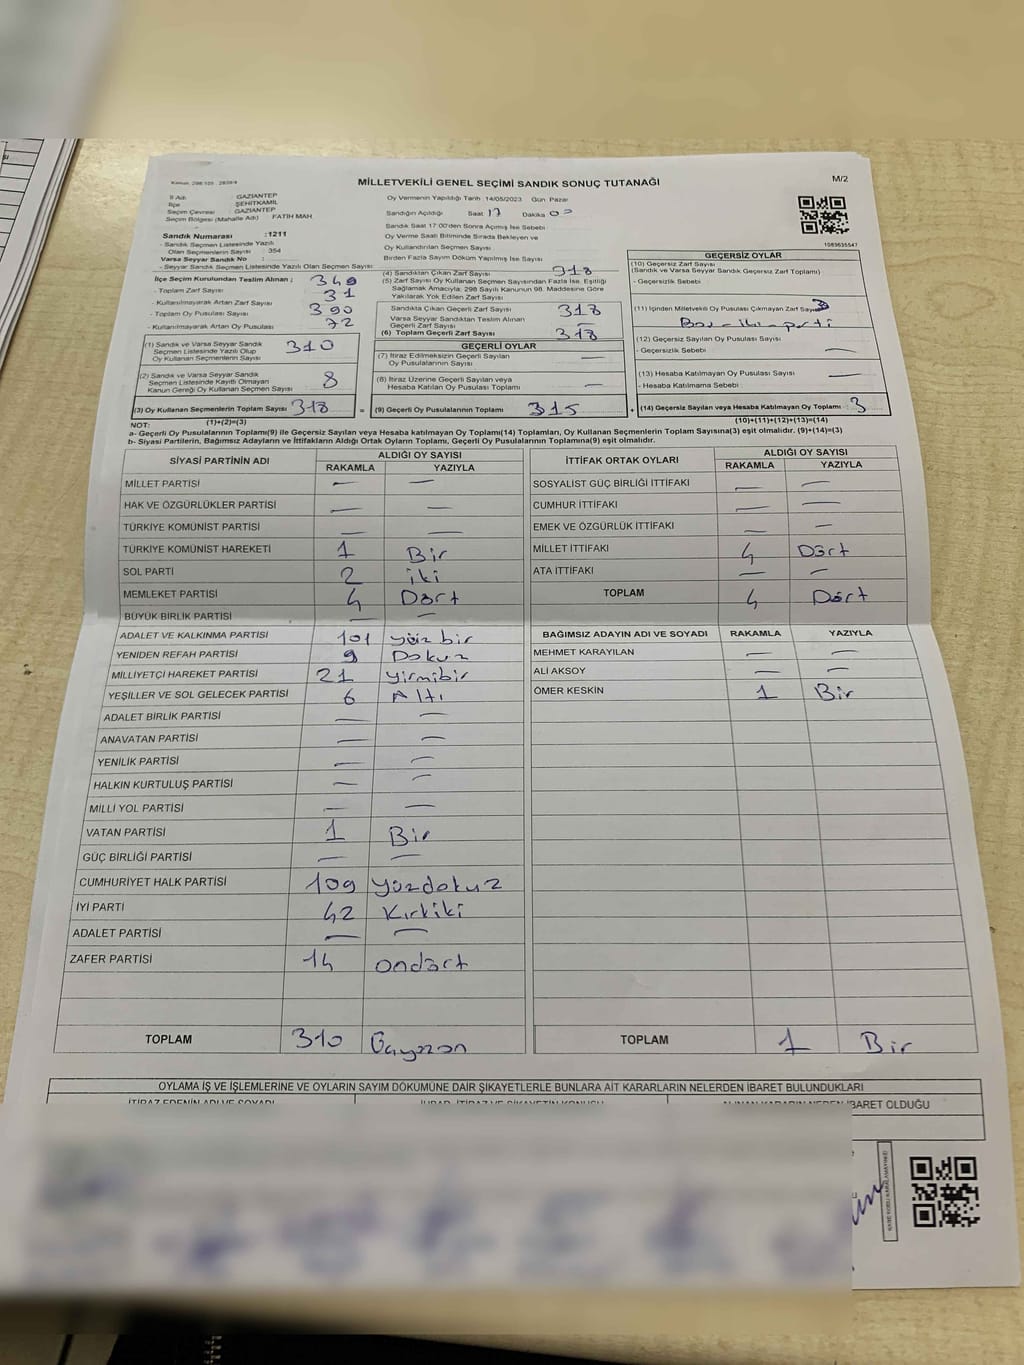 MİLLETVEKİLİ GENEL SEÇİMİ SANDIK SONUÇ TUTANAĞI
M/2
İl Adı: GAZİANTEP
İlçe : ŞEHİTKAMİL
Seçim Çevresi : GAZİANTEP
Seçim Bölgesi (Mahalle Adı) FATİH MAH
Sandık Numarası :1211
- Sandık Seçmen Listesinde Yazılı
Olan Seçmenlerin Sayısı : 354
Varsa Seyyar Sandık No :
- Seyyar Sandık Seçmen Listesinde Yazılı Olan Seçmen Sayısı:
Oy Vermenin Yapıldığı Tarih 14/05/2023 Gün Pazar
Sandığın Açıldığı Saat 17 Dakika 00
Sandık Saat 17:00'den Sonra Açılmış İse Sebebi
Oy Verme Saati Bitiminde Sırada Bekleyen ve
Oy Kullandırılan Seçmen Sayısı
Birden Fazla Sayım Döküm Yapılmış İse Sayısı
1083635547
İlçe Seçim Kurulundan Teslim Alınan ; 349
- Toplam Zarf Sayısı 31
- Kullanılmayarak Artan Zarf Sayısı
- Toplam Oy Pusulası Sayısı 390
- Kullanılmayarak Artan Oy Pusulası 72
(1) Sandık ve Varsa Seyyar Sandık
Seçmen Listesinde Yazılı Olup
Oy Kullanan Seçmenlerin Sayısı 310
(2) Sandık ve Varsa Seyyar Sandık
Seçmen Listesinde Kayıtlı Olmayan
Kanun Gereği Oy Kullanan Seçmen Sayısı 8
(3) Oy Kullanan Seçmenlerin Toplam Sayısı 318
(4) Sandıktan Çıkan Zarf Sayısı 318
(5) Zarf Sayısı Oy Kullanan Seçmen Sayısından Fazla İse, Eşitliği
Sağlamak Amacıyla; 298 Sayılı Kanunun 98. Maddesine Göre
Yakılarak Yok Edilen Zarf Sayısı
Sandıkta Çıkan Geçerli Zarf Sayısı 318
Varsa Seyyar Sandıktan Teslim Alınan
Geçerli Zarf Sayısı —
(6) Toplam Geçerli Zarf Sayısı 318
GEÇERLİ OYLAR
(7) İtiraz Edilmeksizin Geçerli Sayılan
Oy Pusulalarının Sayısı —
(8) İtiraz Üzerine Geçerli Sayılan veya
Hesaba Katılan Oy Pusulası Toplamı —
= (9) Geçerli Oy Pusulalarının Toplamı 315
GEÇERSİZ OYLAR
(10) Geçersiz Zarf Sayısı
(Sandık ve Varsa Seyyar Sandık Geçersiz Zarf Toplamı)
- Geçersizlik Sebebi
(11) İçinden Milletvekili Oy Pusulası Çıkmayan Zarf Sayısı 3
(12) Geçersiz Sayılan Oy Pusulası Sayısı
- Geçersizlik Sebebi —
(13) Hesaba Katılmayan Oy Pusulası Sayısı —
- Hesaba Katılmama Sebebi
+ (14) Geçersiz Sayılan veya Hesaba Katılmayan Oy Toplamı 3
NOT: (1)+(2)=(3) (10)+(11)+(12)+(13)=(14)
a- Geçerli Oy Pusulalarının Toplamı(9) ile Geçersiz Sayılan veya Hesaba katılmayan Oy Toplamı(14) Toplamları, Oy Kullanan Seçmenlerin Toplam Sayısına(3) eşit olmalıdır. (9)+(14)=(3)
b- Siyasi Partilerin, Bağımsız Adayların ve İttifakların Aldığı Ortak Oyların Toplamı, Geçerli Oy Pusulalarının Toplamına(9) eşit olmalıdır.
SİYASİ PARTİNİN ADI ALDIĞI OY SAYISI
RAKAMLA YAZIYLA
MİLLET PARTİSİ — —
HAK VE ÖZGÜRLÜKLER PARTİSİ — —
TÜRKİYE KOMÜNİST PARTİSİ — —
TÜRKİYE KOMÜNİST HAREKETİ 1 Bir
SOL PARTİ 2 iki
MEMLEKET PARTİSİ 4 Dört
BÜYÜK BİRLİK PARTİSİ — —
ADALET VE KALKINMA PARTİSİ 101 yüz bir
YENİDEN REFAH PARTİSİ 9 Dokuz
MİLLİYETÇİ HAREKET PARTİSİ 21 yirmibir
YEŞİLLER VE SOL GELECEK PARTİSİ 6 Altı
ADALET BİRLİK PARTİSİ — —
ANAVATAN PARTİSİ — —
YENİLİK PARTİSİ — —
HALKIN KURTULUŞ PARTİSİ — —
MİLLİ YOL PARTİSİ — —
VATAN PARTİSİ 1 Bir
GÜÇ BİRLİĞİ PARTİSİ — —
CUMHURİYET HALK PARTİSİ 109 yüzdokuz
İYİ PARTİ 42 Kırkiki
ADALET PARTİSİ — —
ZAFER PARTİSİ 14 ondört
TOPLAM 310
İTTİFAK ORTAK OYLARI ALDIĞI OY SAYISI
RAKAMLA YAZIYLA
SOSYALİST GÜÇ BİRLİĞİ İTTİFAKI — —
CUMHUR İTTİFAKI — —
EMEK VE ÖZGÜRLÜK İTTİFAKI — —
MİLLET İTTİFAKI 4 Dört
ATA İTTİFAKI — —
TOPLAM 4 Dört
BAĞIMSIZ ADAYIN ADI VE SOYADI RAKAMLA YAZIYLA
MEHMET KARAYILAN — —
ALİ AKSOY — —
ÖMER KESKİN 1 Bir
TOPLAM 1 Bir
OYLAMA İŞ VE İŞLEMLERİNE VE OYLARIN SAYIM DÖKÜMÜNE DAİR ŞİKAYETLERLE BUNLARA AİT KARARLARIN NELERDEN İBARET BULUNDUKLARI
İTİRAZ EDENİN ADI VE SOYADI